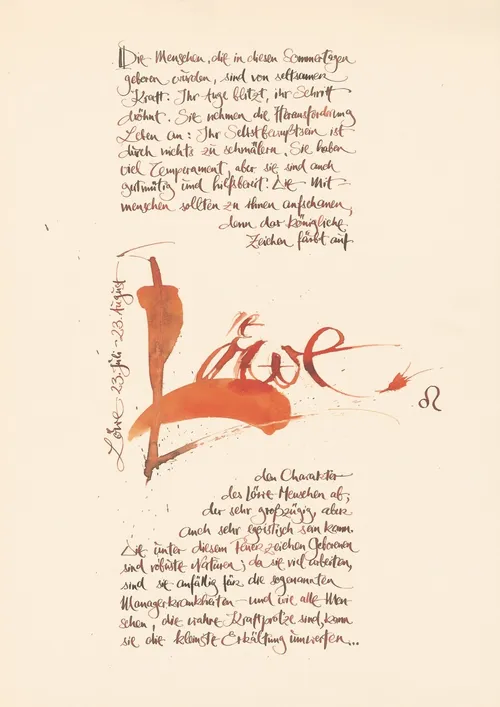 Die Menschen, die in diesen Sommertagen
geboren wurden, sind von seltsamer
Kraft: Ihr Auge blitzt, ihr Schritt
dröhnt. Sie nehmen die Herausforderung
Leben an: Ihr Selbstbewußtsein ist
durch nichts zu schmälern. Sie haben
viel Temperament, aber sie sind auch
gutmütig und hilfsbereit. Die Mit=
menschen sollten zu ihnen aufschauen,
denn das königliche
Zeichen färbt auf
Löwe 23. Juli - 23. August
Löwe
♌
den Charakter
des Löwe Menschen ab,
der sehr großzügig, aber
auch sehr egoistisch sein kann.
Die unter diesem Feuerzeichen Geborenen
sind robuste Naturen; da sie viel arbeiten,
sind sie anfällig für die sogenannten
Managerkrankheiten – und wie alle Men-
schen, die wahre Kraftprotze sind, kann
sie die kleinste Erkältung umwerfen...